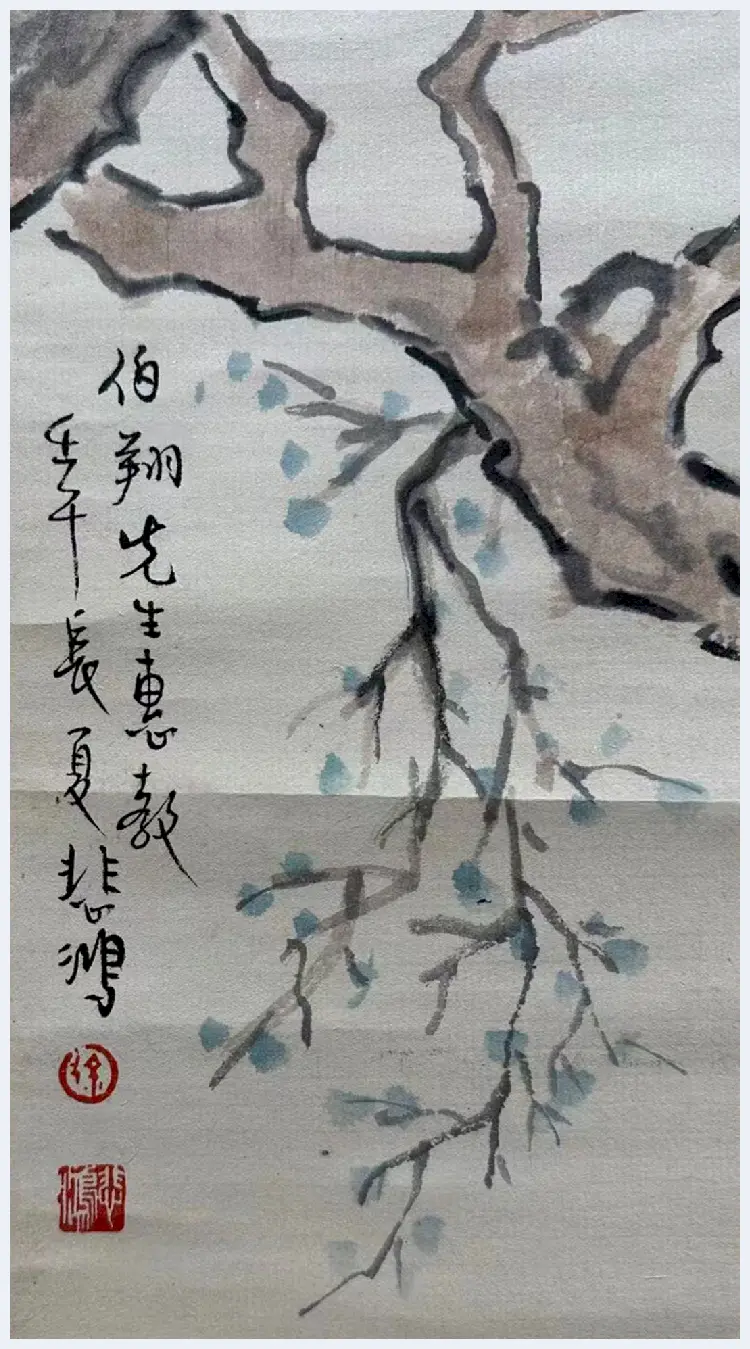 伯翔先生惠教
壬午長夏悲鴻
徐
悲鴻